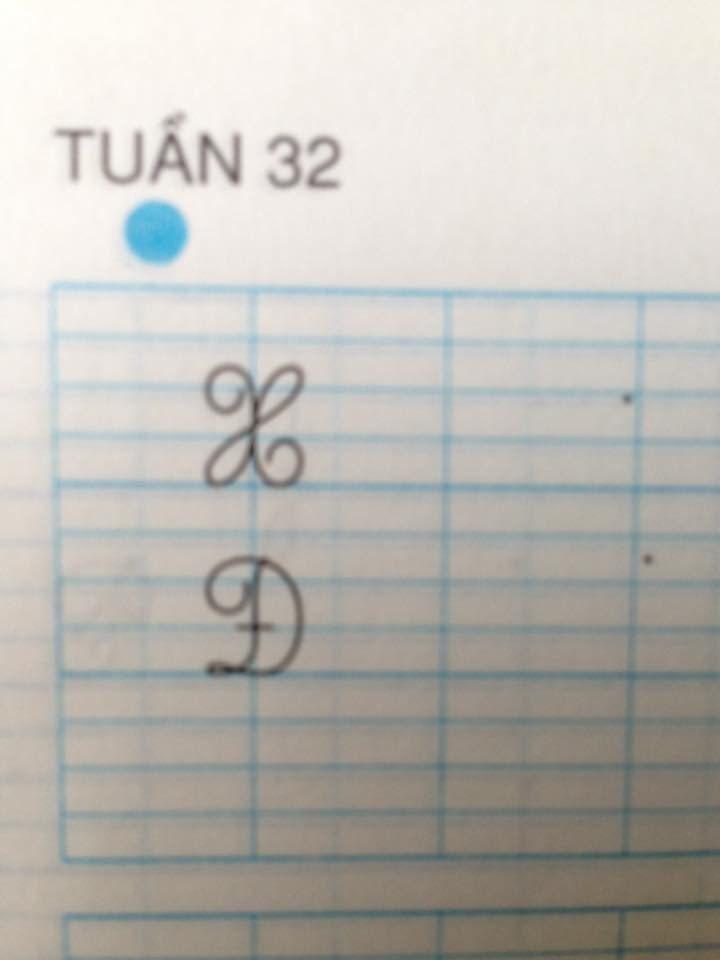 TUẦN 32
X
Đ